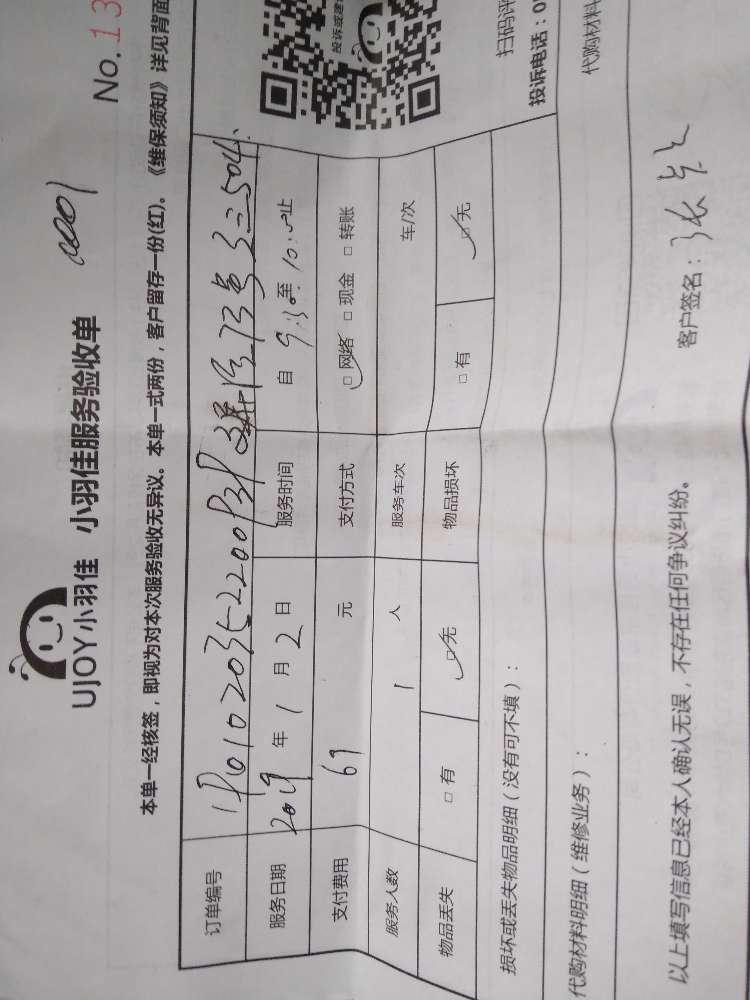 UJOY小羽佳 小羽佳服务验收单
0001
No.13
本单一经核签，即视为对本次服务验收无异议。本单一式两份，客户留存一份(红)。《维保须知》详见背面
订单编号
服务日期 2019 年 1 月 2 日 服务时间 自 9:30 至 10:50 止
支付费用 69 元 支付方式 □ 网络 □ 现金 □ 转账
服务人数 1 人 服务车次 车/次
物品丢失 □ 有 □ 无 物品损坏 □ 有 □ 无
投诉或建
扫码评
投诉电话：0
损坏或丢失物品明细（没有可不填）：
代购材料
代购材料明细（维修业务）：
以上填写信息已经本人确认无误，不存在任何争议纠纷。
客户签名：张